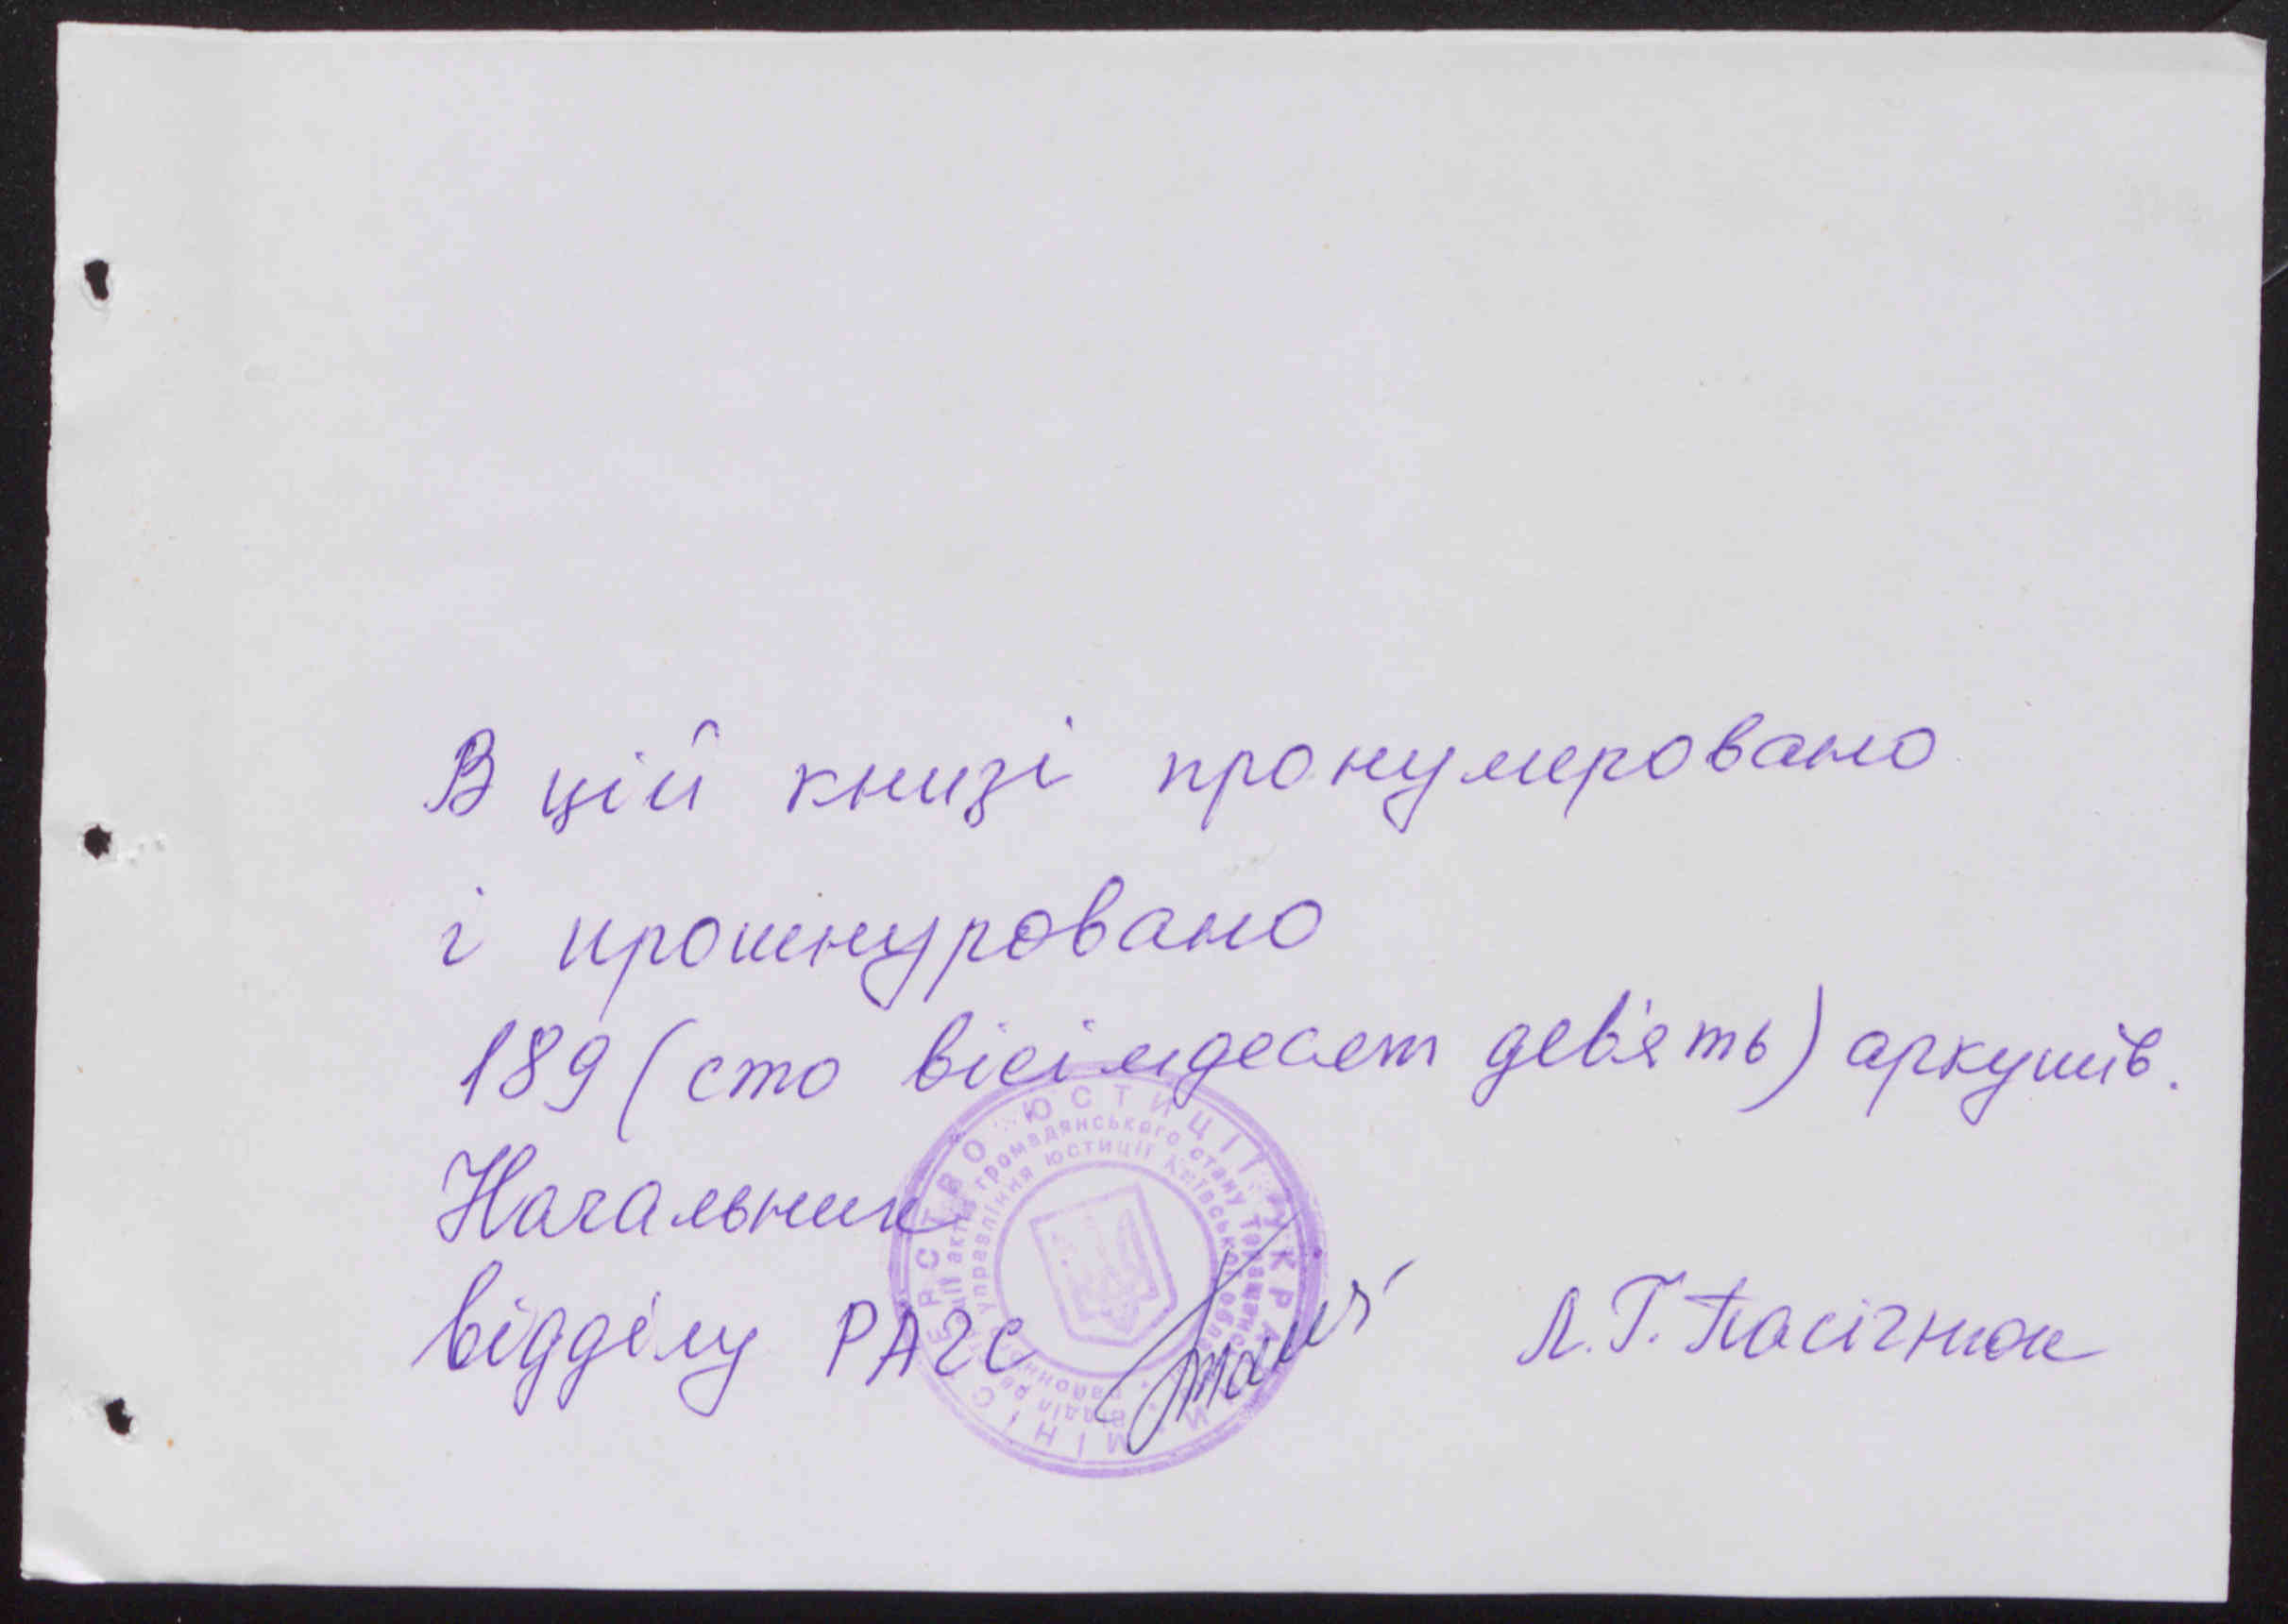 В цій книзі пронумеровано
і прошнуровано
189 (сто вісімдесят дев'ять) аркушів.
Начальник
відділу РАГС Л.Г. Пасічнюк
МІНІСТЕРСТВО ЮСТИЦІЇ УКРАЇНИ
Відділ реєстрації актів громадянського стану
районного управління юстиції Київської області